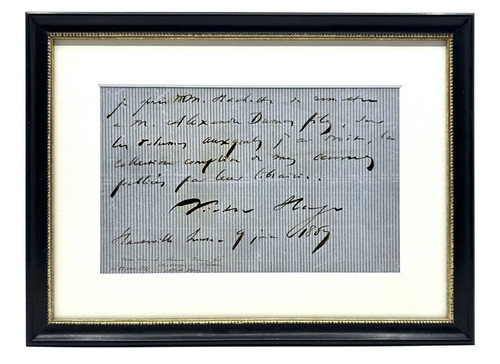 je prie MM. Hachette de remettre
à M. Alexandre Dumas fils,
les volumes auxquels j'ai droit, la
collection complète de mes œuvres
publiées par leur librairie.
Victor Hugo
Hauteville house - 9 juin 1867